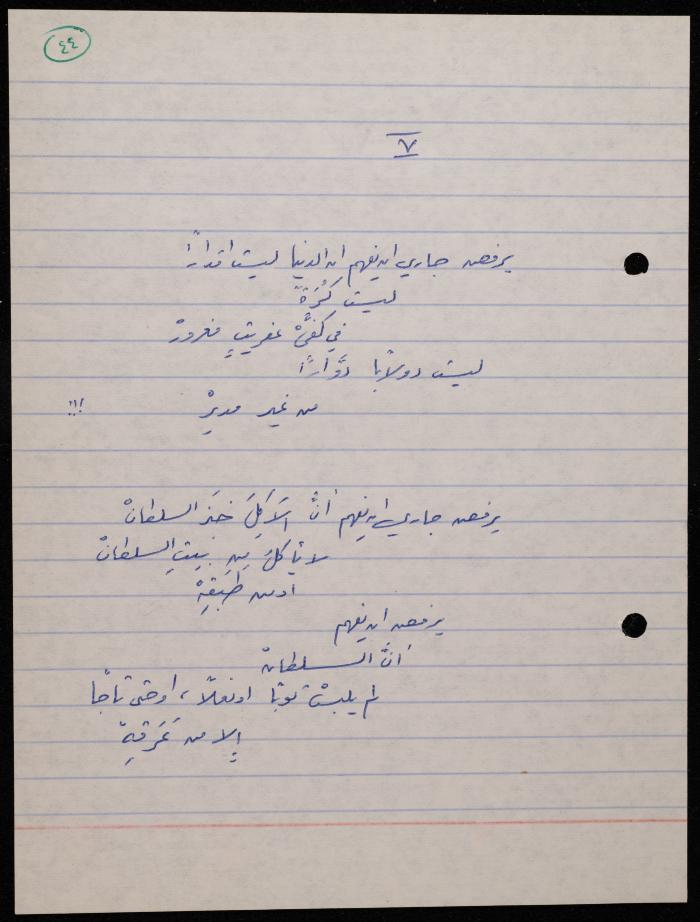 ٤٤
٧
يرفض حماري ان يفهم ان الدنيا ليست اقدارًا
ليست كُرَةً
في كفَّيْ عفريتٍ مغرورْ
ليست دولابًا دوَّارًا
من غير مديرْ !!!
يرفض حماري ان يفهم أنَّ الآكِلَ خبزَ السلطانْ
لا يأكلُ مِن بيتِ السلطانْ
او من طبَقِهْ
يرفض ان يفهم
أنَّ السلطانْ
لم يلبسْ ثوبًا او نعلًا، او حتى تاجًا
إلا من عَرَقِهْ